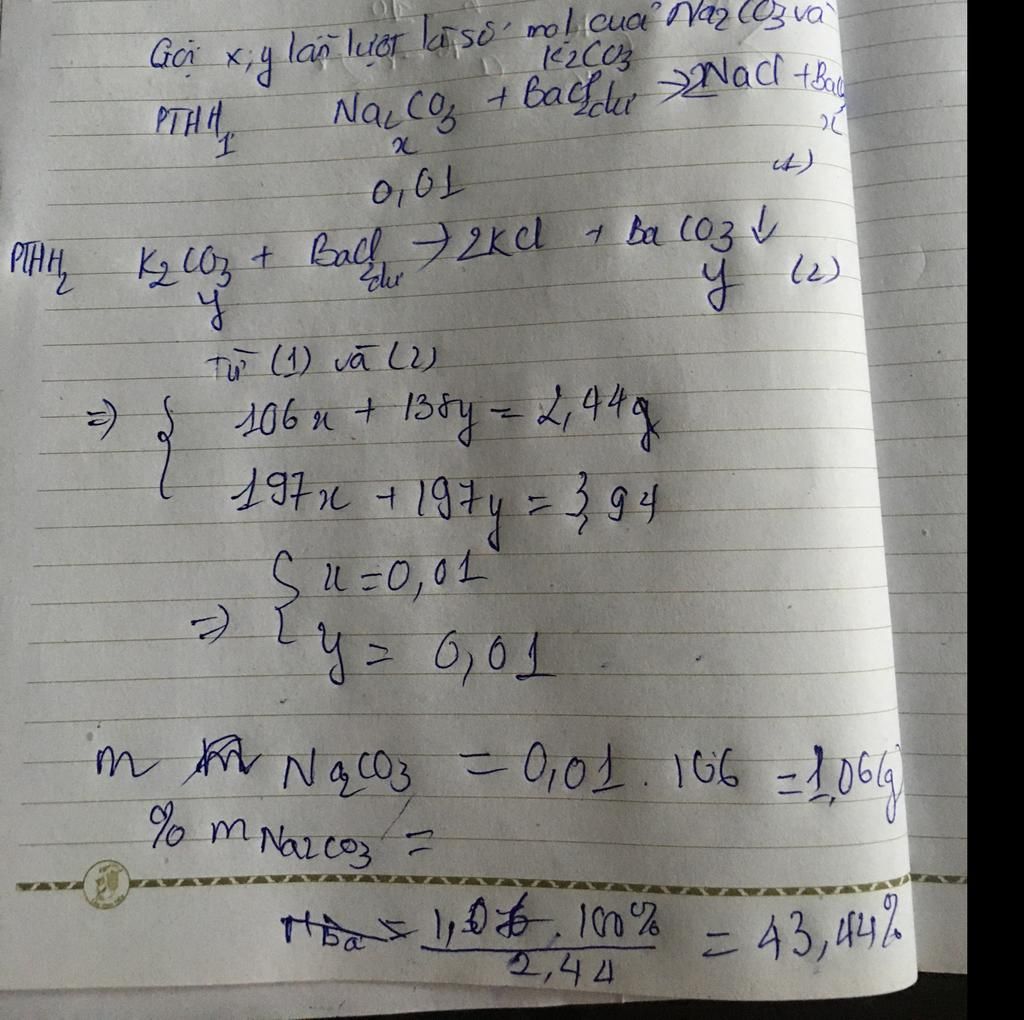 Gọi x, y lần lượt là số mol của Na2CO3 và
K2CO3
PTHH1 Na2CO3 + BaCl2dư → 2NaCl +
x x
0,01 (1)
PTHH2 K2CO3 + BaCl2dư → 2KCl + BaCO3 ↓
y y (2)
Từ (1) và (2)
=> { 106x + 138y = 2,44g
197x + 197y = 3,94
=> { x = 0,01
y = 0,01
m Na2CO3 = 0,01 . 106 = 1,06g
% m Na2CO3 =
= 1,06 . 100% / 2,44 = 43,44%